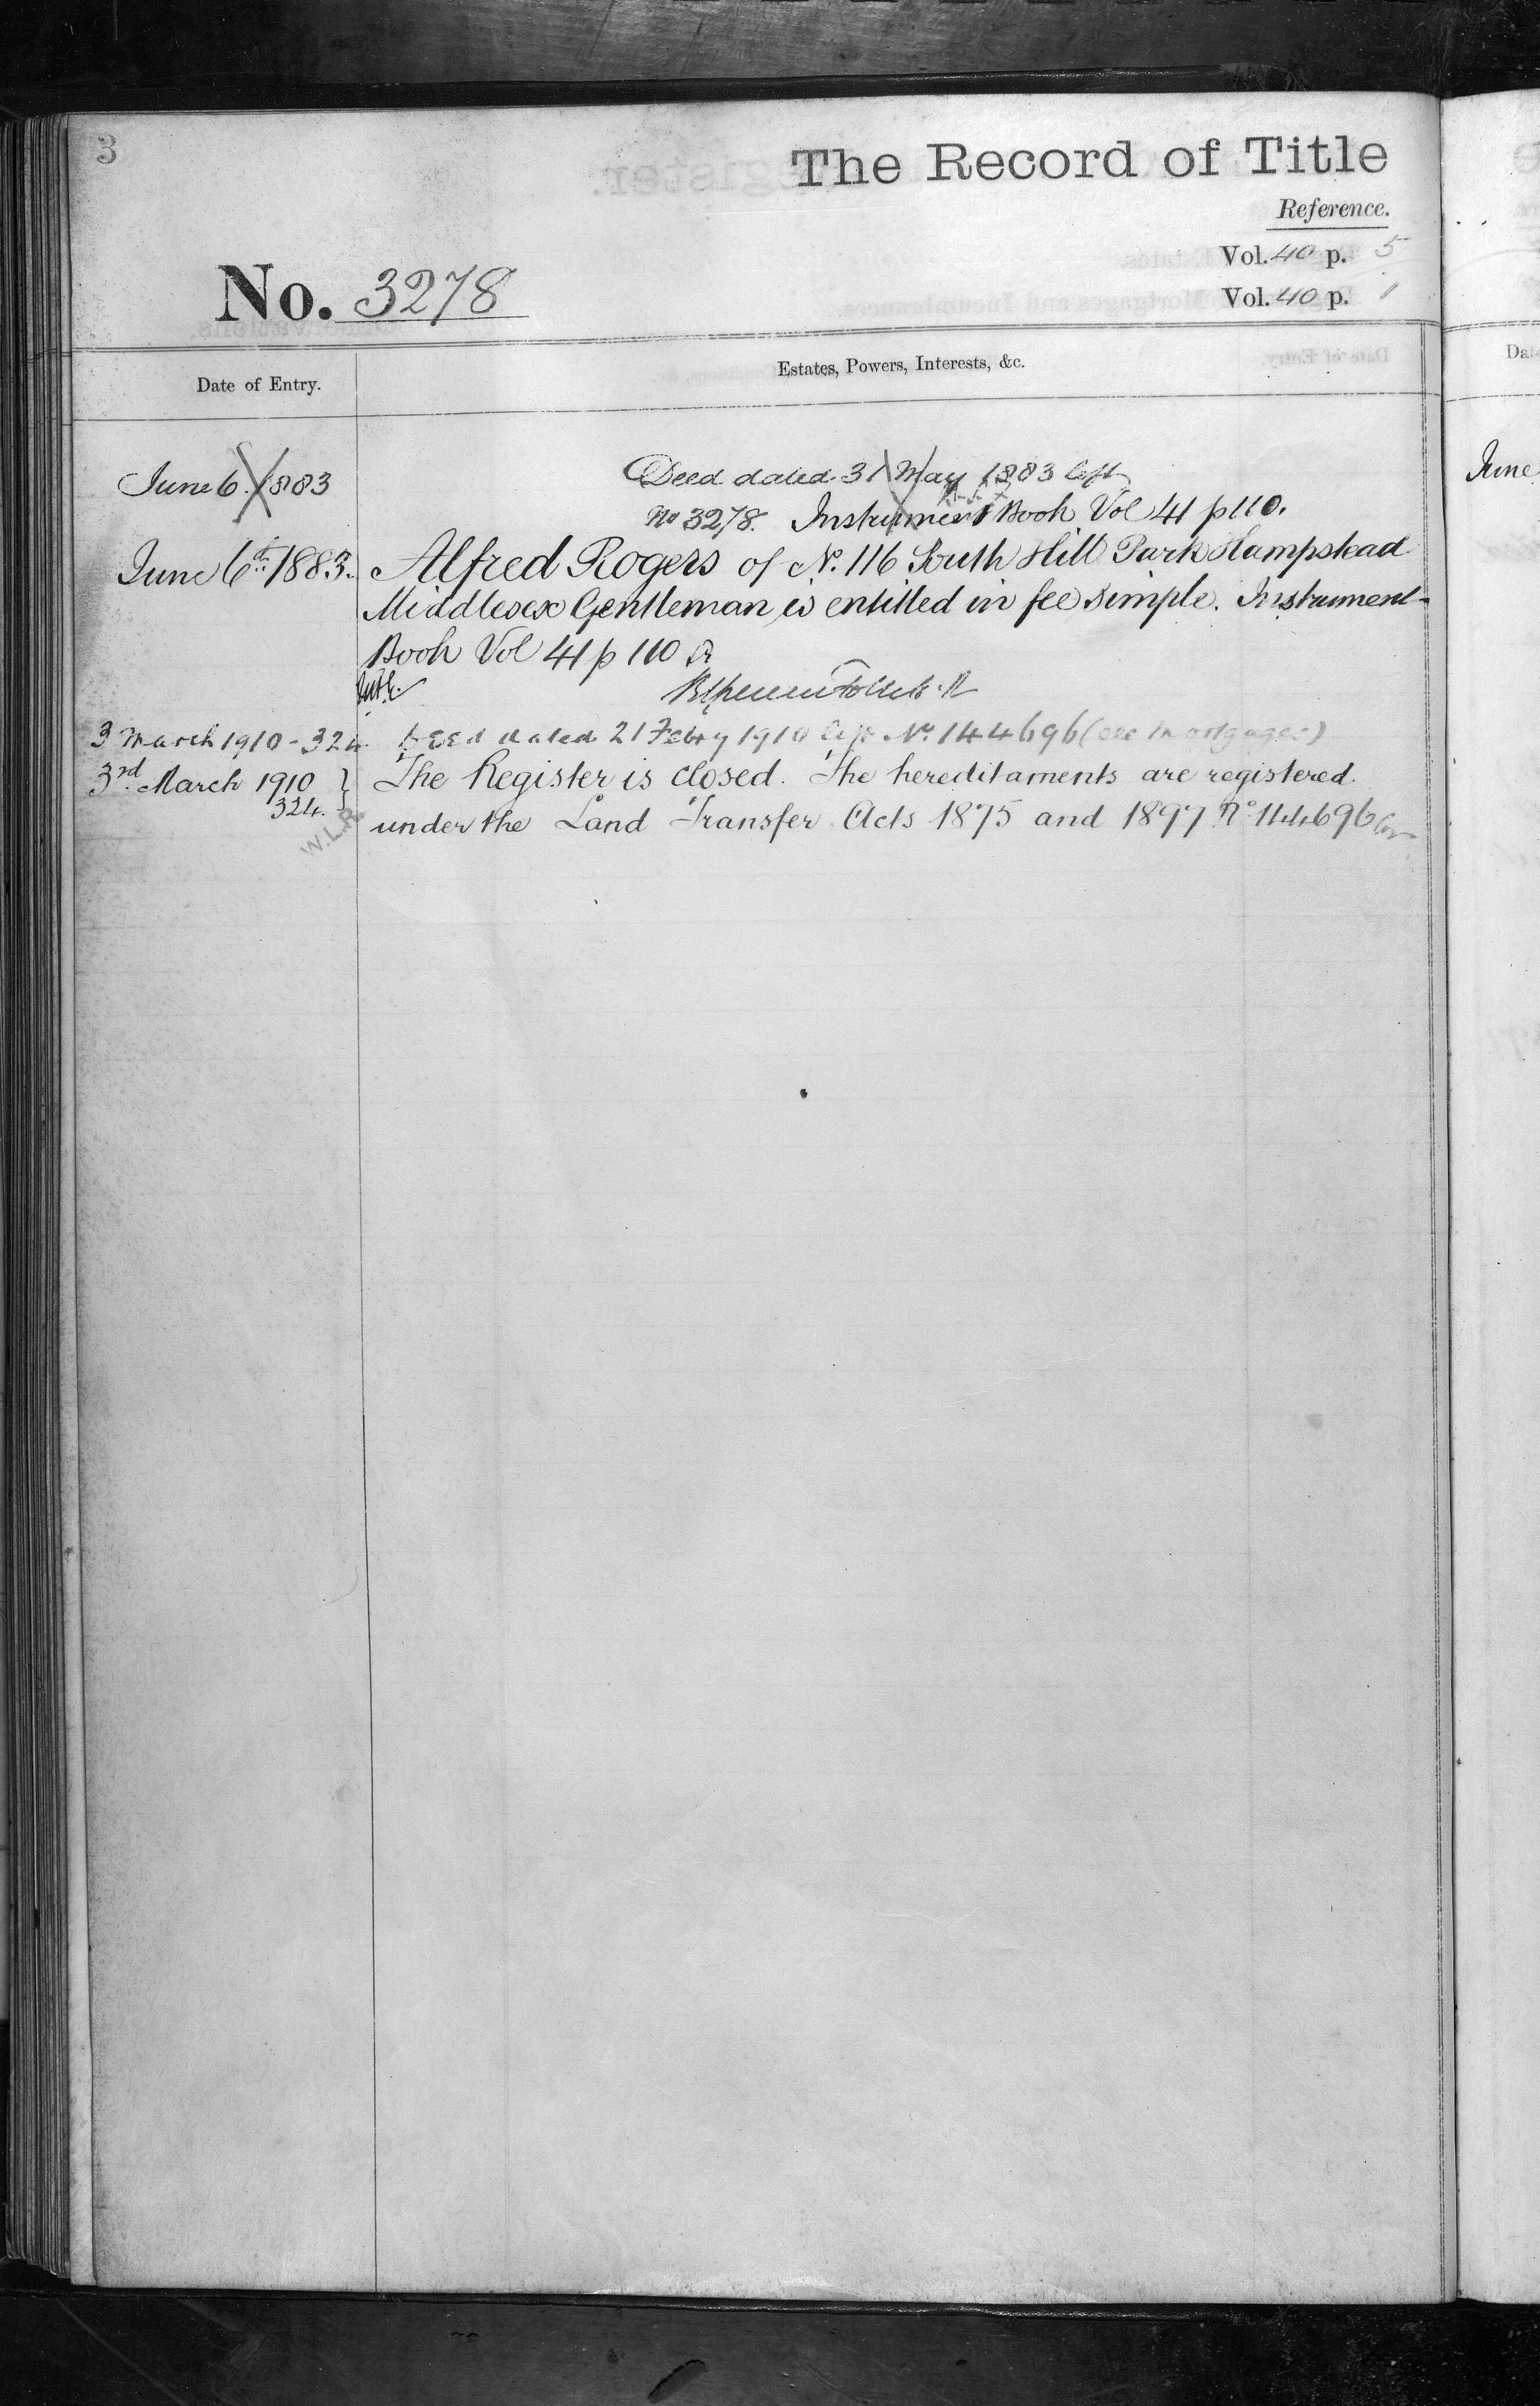 3
The Record of Title
Reference.
Vol. 40 p. 5
No. 3278
Vol. 40 p. 1
Date of Entry.
Estates, Powers, Interests, &c.
June 6. 1883
Deed dated 31 May 1883 left
No 3278. Instrument Book Vol 41 p 110.
June 6th 1883. Alfred Rogers of No. 116 South Hill Park Hampstead
Middlesex Gentleman is entitled in fee simple. Instrument
Book Vol 41 p 110
3 March 1910 - 324. Deed dated 21 Febry 1910 No. 144696 (see Mortgages)
3rd March 1910 } The Register is closed. The hereditaments are registered
324. under the Land Transfer Acts 1875 and 1897 No 144696
W.L.R.
Date
June